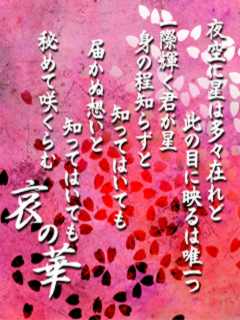 夜空に星は多々在れど
此の目に映るは唯一つ
一際輝く君が星
身の程知らずと
知ってはいても
届かぬ想いと
知ってはいても
秘めて咲くらむ
哀の華